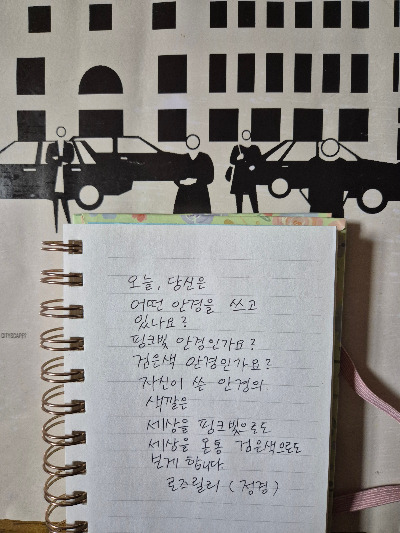 오늘, 당신은
어떤 안경을 쓰고
있나요?
핑크빛 안경인가요?
검은색 안경인가요?
자신이 쓴 안경의
색깔은
세상을 핑크빛으로도
세상을 온통 검은색으로도
보게 합니다
로즈릴리 (정경)